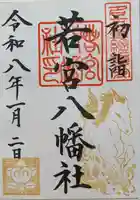 初詣
若宮八幡社
令和八年一月二日